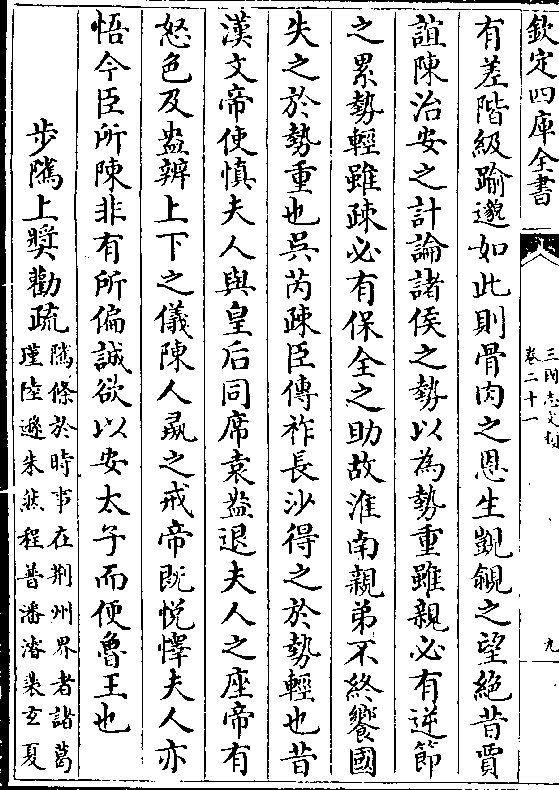 欽定四庫全書
三國志文類
卷二十一
九
有差階級踰邈如此則骨肉之恩生覬覦之望絶昔賈
誼陳治安之計論諸侯之勢以為勢重雖親必有逆節
之累勢輕雖疎必有保全之助故淮南親弟不終饗國
失之於勢重也吳芮疎臣傳祚長沙得之於勢輕也昔
漢文帝使慎夫人與皇后同席袁盎退夫人之座帝有
怒色及盎辨上下之儀陳人彘之戒帝既悦懌夫人亦
悟今臣所陳非有所偏誠欲以安太子而便魯王也
步隲上奬勸疏
隲條於時事在荆州界者諸葛
瑾陸遜朱然程普潘濬裴玄夏